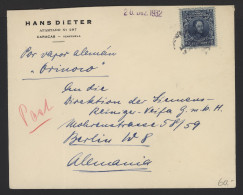 HANS DIETER
APARTADO NO. 467
CARACAS - VENEZUELA
Por vapor alemán
"Orinoco"
An die
Direktion der Siemens-
Reiniger-Veifa G.m.b.H.
Mohrenstrasse 58/59
Berlin W 8
Alemania